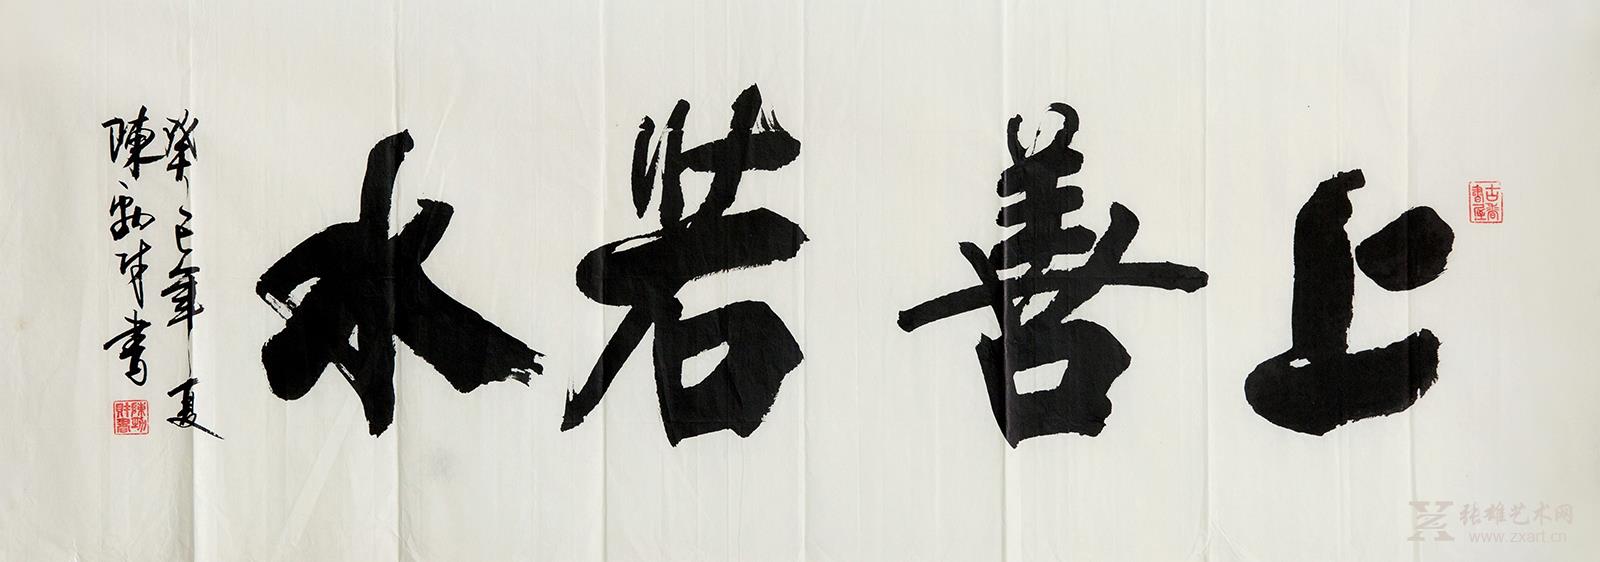 上善若水
癸巳年夏
陳勛財書
张雄艺术网
www.zxart.cn